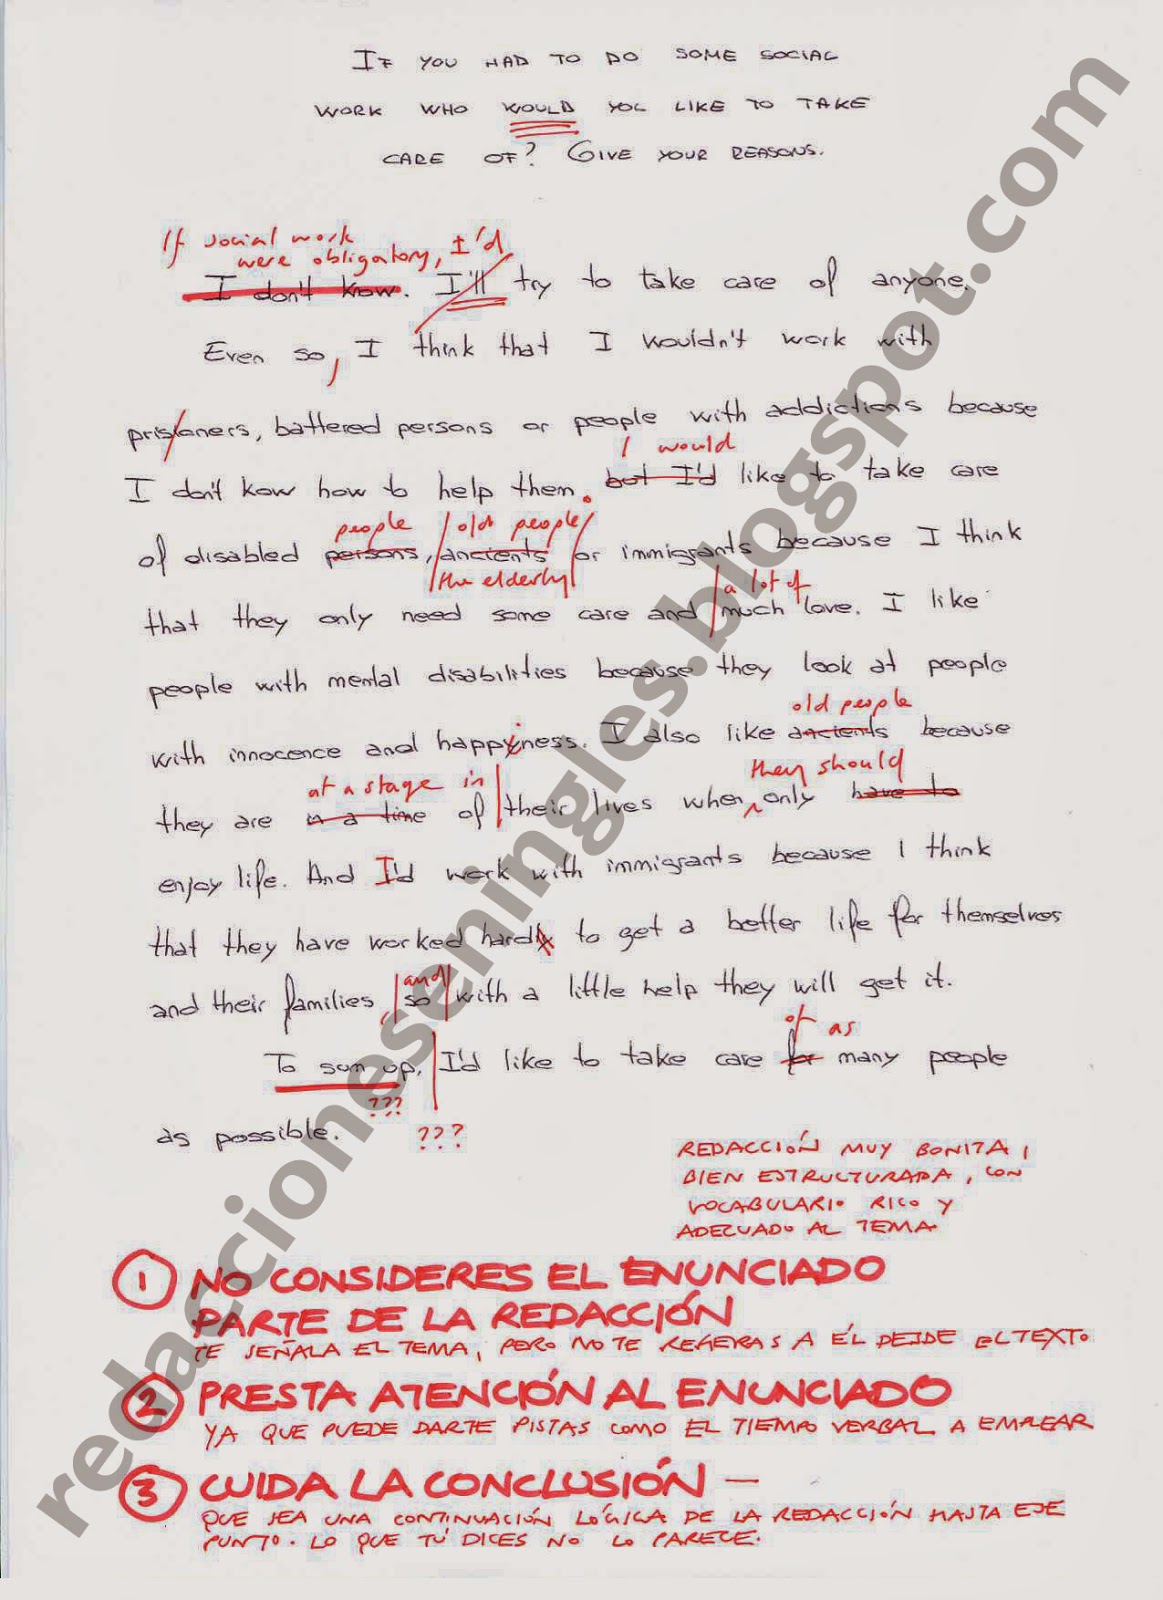 IF YOU HAD TO DO SOME SOCIAL
WORK WHO WOULD YOU LIKE TO TAKE
CARE OF? GIVE YOUR REASONS.
If social work
were obligatory, I'd
I don't know. I'll try to take care of anyone.
Even so, I think that I wouldn't work with
prisioners, battered persons or people with addictions because
I would
I don't know how to help them. but I'd like to take care
people old people
of disabled persons, ancients or immigrants because I think
the elderly a lot of
that they only need some care and much love. I like
people with mental disabilities because they look at people
old people
with innocence and happiness. I also like ancients because
at a stage in they should
they are in a time of their lives when only have to
enjoy life. And I'd work with immigrants because I think
that they have worked hardly to get a better life for themselves
and
and their families, so with a little help they will get it.
of as
To sum up, I'd like to take care for many people
???
as possible. ???
REDACCIÓN MUY BONITA,
BIEN ESTRUCTURADA, CON
VOCABULARIO RICO Y
ADECUADO AL TEMA
1 NO CONSIDERES EL ENUNCIADO
PARTE DE LA REDACCIÓN
TE SEÑALA EL TEMA, PERO NO TE REFIERAS A ÉL DESDE EL TEXTO.
2 PRESTA ATENCIÓN AL ENUNCIADO
YA QUE PUEDE DARTE PISTAS COMO EL TIEMPO VERBAL A EMPLEAR
3 CUIDA LA CONCLUSIÓN —
QUE SEA UNA CONTINUACIÓN LÓGICA DE LA REDACCIÓN HASTA ESE
PUNTO. LO QUE TÚ DICES NO LO PARECE.
redaccioneseningles.blogspot.com